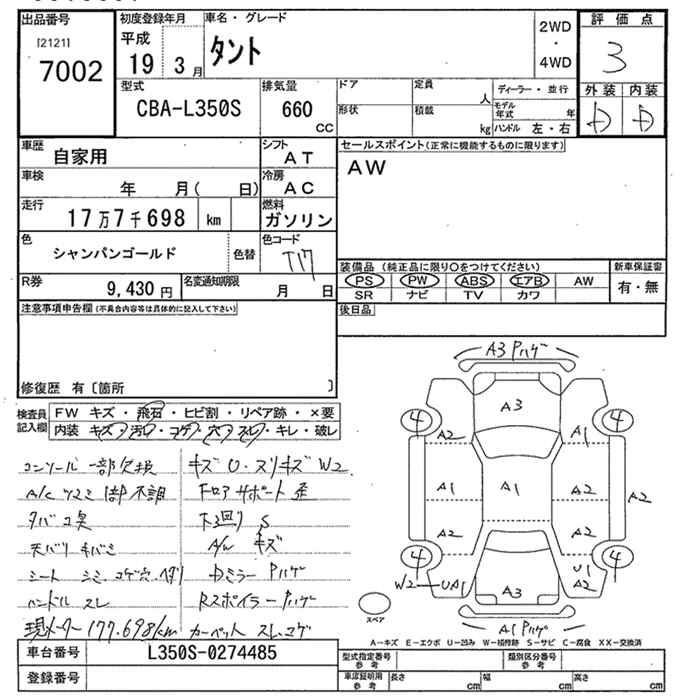 出品番号
[2121]
7002
初度登録年月
平成
19
3月
車名・グレード
タント
2WD
・
4WD
評価点
3
外装 内装
D D
型式
CBA-L350S
排気量
660
CC
ドア
形状
定員
人
積載
kg
ディーラー・並行
モデル年式 年
ハンドル 左・右
車歴
自家用
シフト
AT
セールスポイント(正常に機能するものに限ります)
AW
車検
年 月( 日)
冷房
AC
走行
17万7千698 km
燃料
ガソリン
色
シャンパンゴールド
色替
色コード
T17
R券
9,430円
名変通知期限
月 日
装備品 (純正品に限り○をつけてください)
PS PW ABS エアB AW
SR ナビ TV カワ
新車保証書
有・無
後日品
注意事項申告欄(不具合内容等は具体的に記入して下さい)
修復歴 有〔箇所 〕
検査員記入欄
FW キズ・飛石・ヒビ割・リペア跡・×要
内装 キズ・汚れ・コゲ・穴・スレ・キレ・破レ
コンソール一部欠損
A/C ツマミ 1部不調
タバコ臭
天バリ キバミ
シート シミ、コゲ穴、ヘタリ
ハンドル スレ
現メーター 177.698km
キズ U・スリキズ W2
ドロアサポート歪
下回り S
A/W キズ
Dミラー Pハゲ
Rスポイラー Pハゲ
カーペット スレ、コゲ
A3 Pハゲ
A3
4
4
A2
A1
A1
A1
A2
A2
A2
A2
4
4
W2
UA1
A3
U1
A2
A1 Pハゲ
スペア
A-キズ E-エクボ U-凹み W-補修跡 S-サビ C-腐食 XX-交換済
車台番号
L350S-0274485
登録番号
型式指定番号
参考
類別区分番号
参考
車庫証明用
参考
長さ cm
幅 cm
高さ cm